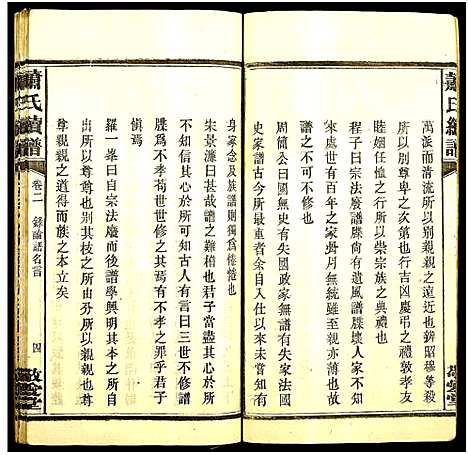 蕭氏續譜
萬派而清流所以別親親之遠近也辨昭穆等殺
所以別尊卑之次第也行吉凶慶弔之禮敦孝友
睦婣任恤之行所以崇宗族之典禮也
程子曰宗法廢譜牒尚有遺風譜牒壞人家不知
來處世有百年之家
無統雖至親亦薄也
譜之不可不修也
周簡公曰國無史有失國政家無譜有失家法國
史家譜古今所最重者余自入仕以來未嘗不以
身家念及族譜則獨爲惓惓也
朱景濂曰甚哉譜之難稽也君子當盡其
所可知不可知古人有言曰三世不修譜
牒爲不孝苟世世修之其有不孝之罪乎君子
慎焉
羅一峯曰自宗法廢而後譜學興明其本之所自
出所以尊尊也別其支之所由分所以親親也尊
尊親親之道得而族之本立矣
蕭氏續譜
卷二
錄論譜名言
四
敬愛堂